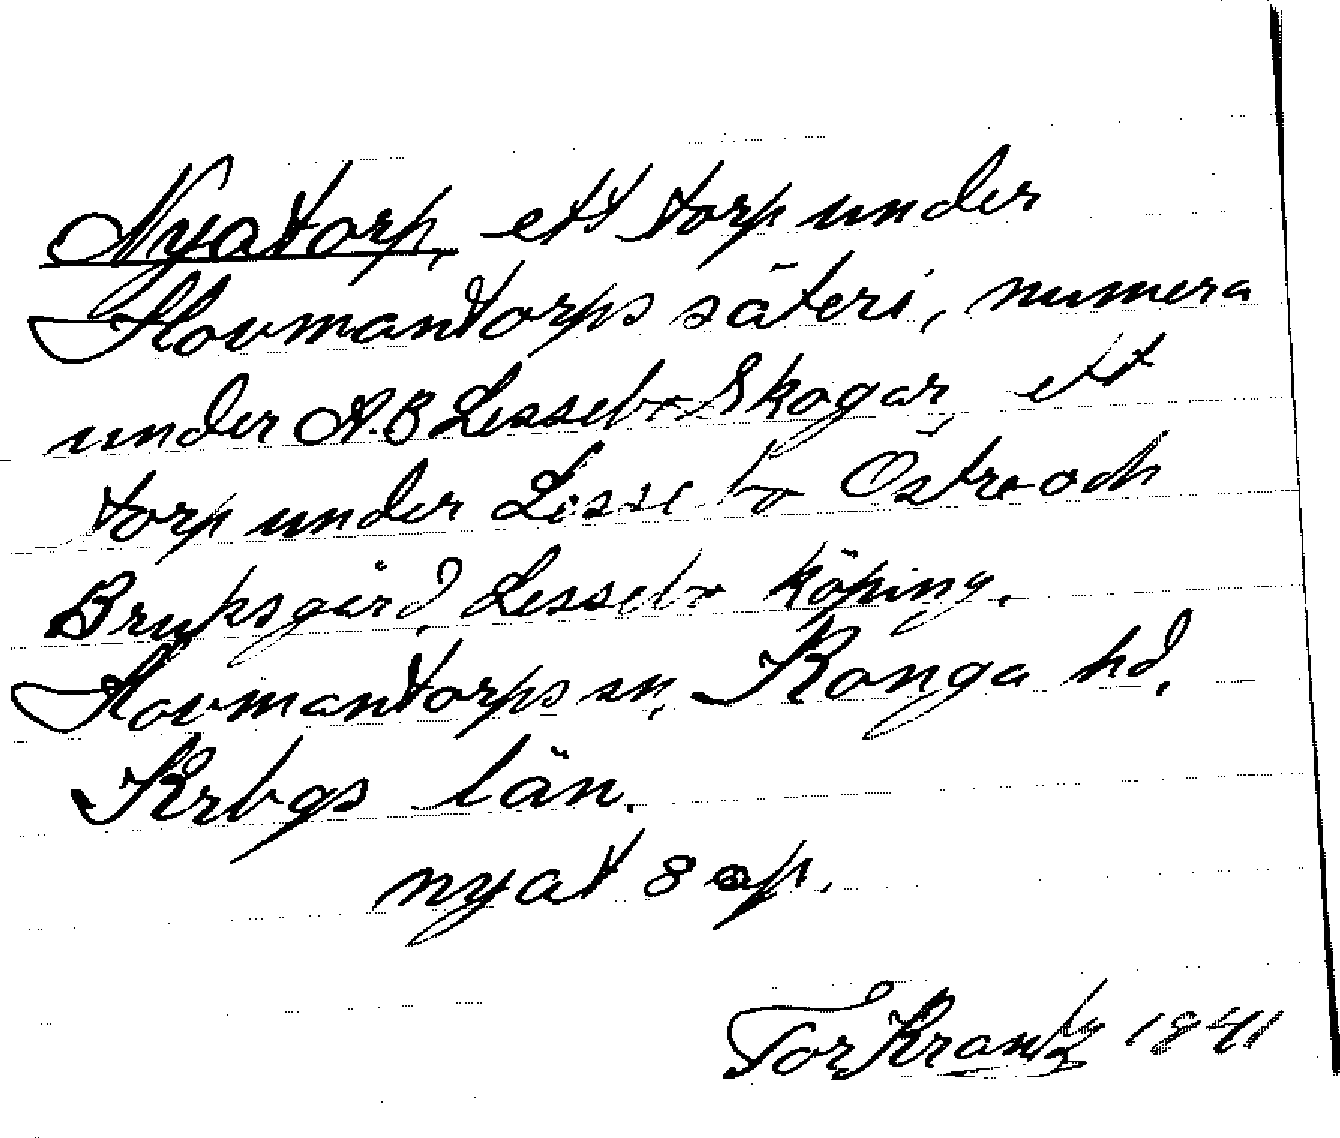 Nyatorp, ett torp under
Hovmantorps säteri, numera
under A.B Lessebo Skogar, ett
torp under Lessebo Östra och
Bruksgård, Lessebo köping.
Hovmantorps sn, Konga hd,
Krbgs län.
nyat s ap.
Tor Krantz 1941